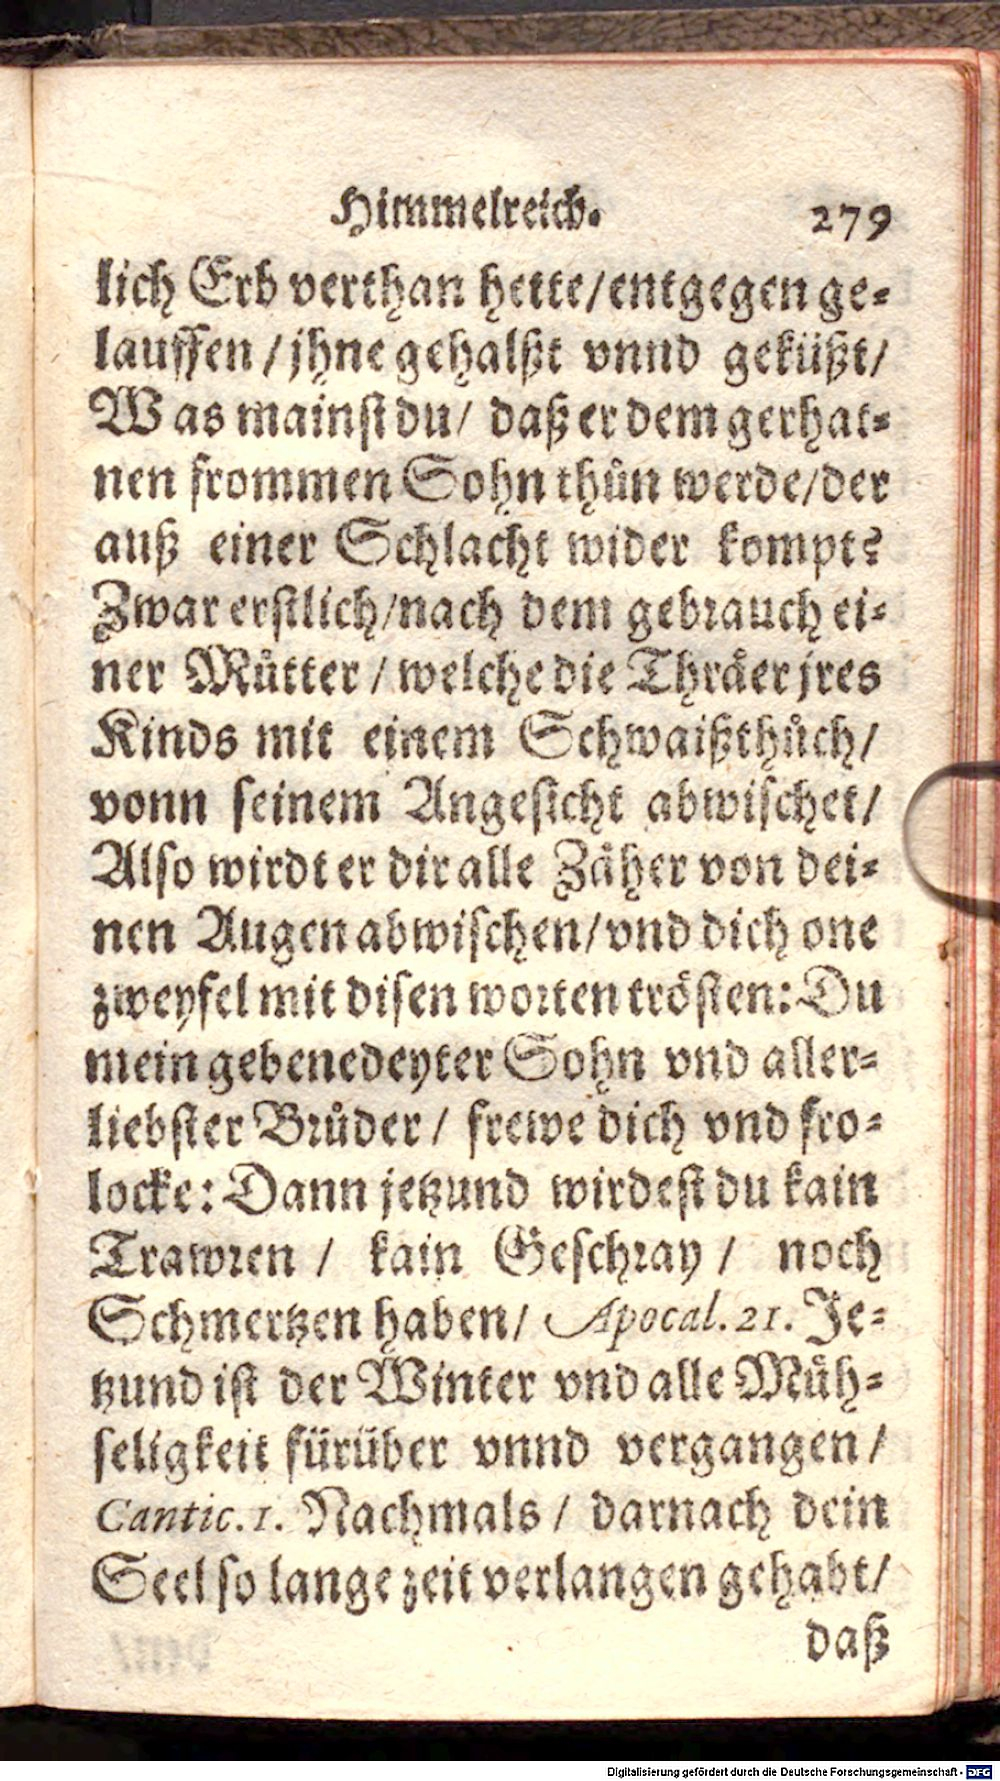 Himmelreich. 279
lich Erb verthan hette/entgegen ge-
lauffen / jhne gehalßt vnnd geküßt/
Was mainst du/ daß er dem gerhat-
nen frommen Sohn thůn werde/der
auß einer Schlacht wider kompt?
Zwar erstlich/nach dem gebrauch ei-
ner Můtter / welche die Thräer jres
Kinds mit einem Schwaißthůch/
vonn seinem Angesicht abwischet/
Also wirdt er dir alle Zäher von dei-
nen Augen abwischen/vnd dich one
zweyfel mit disen worten trösten: Du
mein gebenedeyter Sohn vnd aller-
liebster Brůder / frewe dich vnd fro-
locke: Dann jetzund wirdest du kain
Trawren / kain Geschray / noch
Schmertzen haben/ Apocal. 21. Je-
tzund ist der Winter vnd alle Müh-
seligkeit fürüber vnnd vergangen /
Cantic. 1. Nachmals / darnach dein
Seel so lange zeit verlangen gehabt/
daß
Digitalisierung gefördert durch die Deutsche Forschungsgemeinschaft - DFG